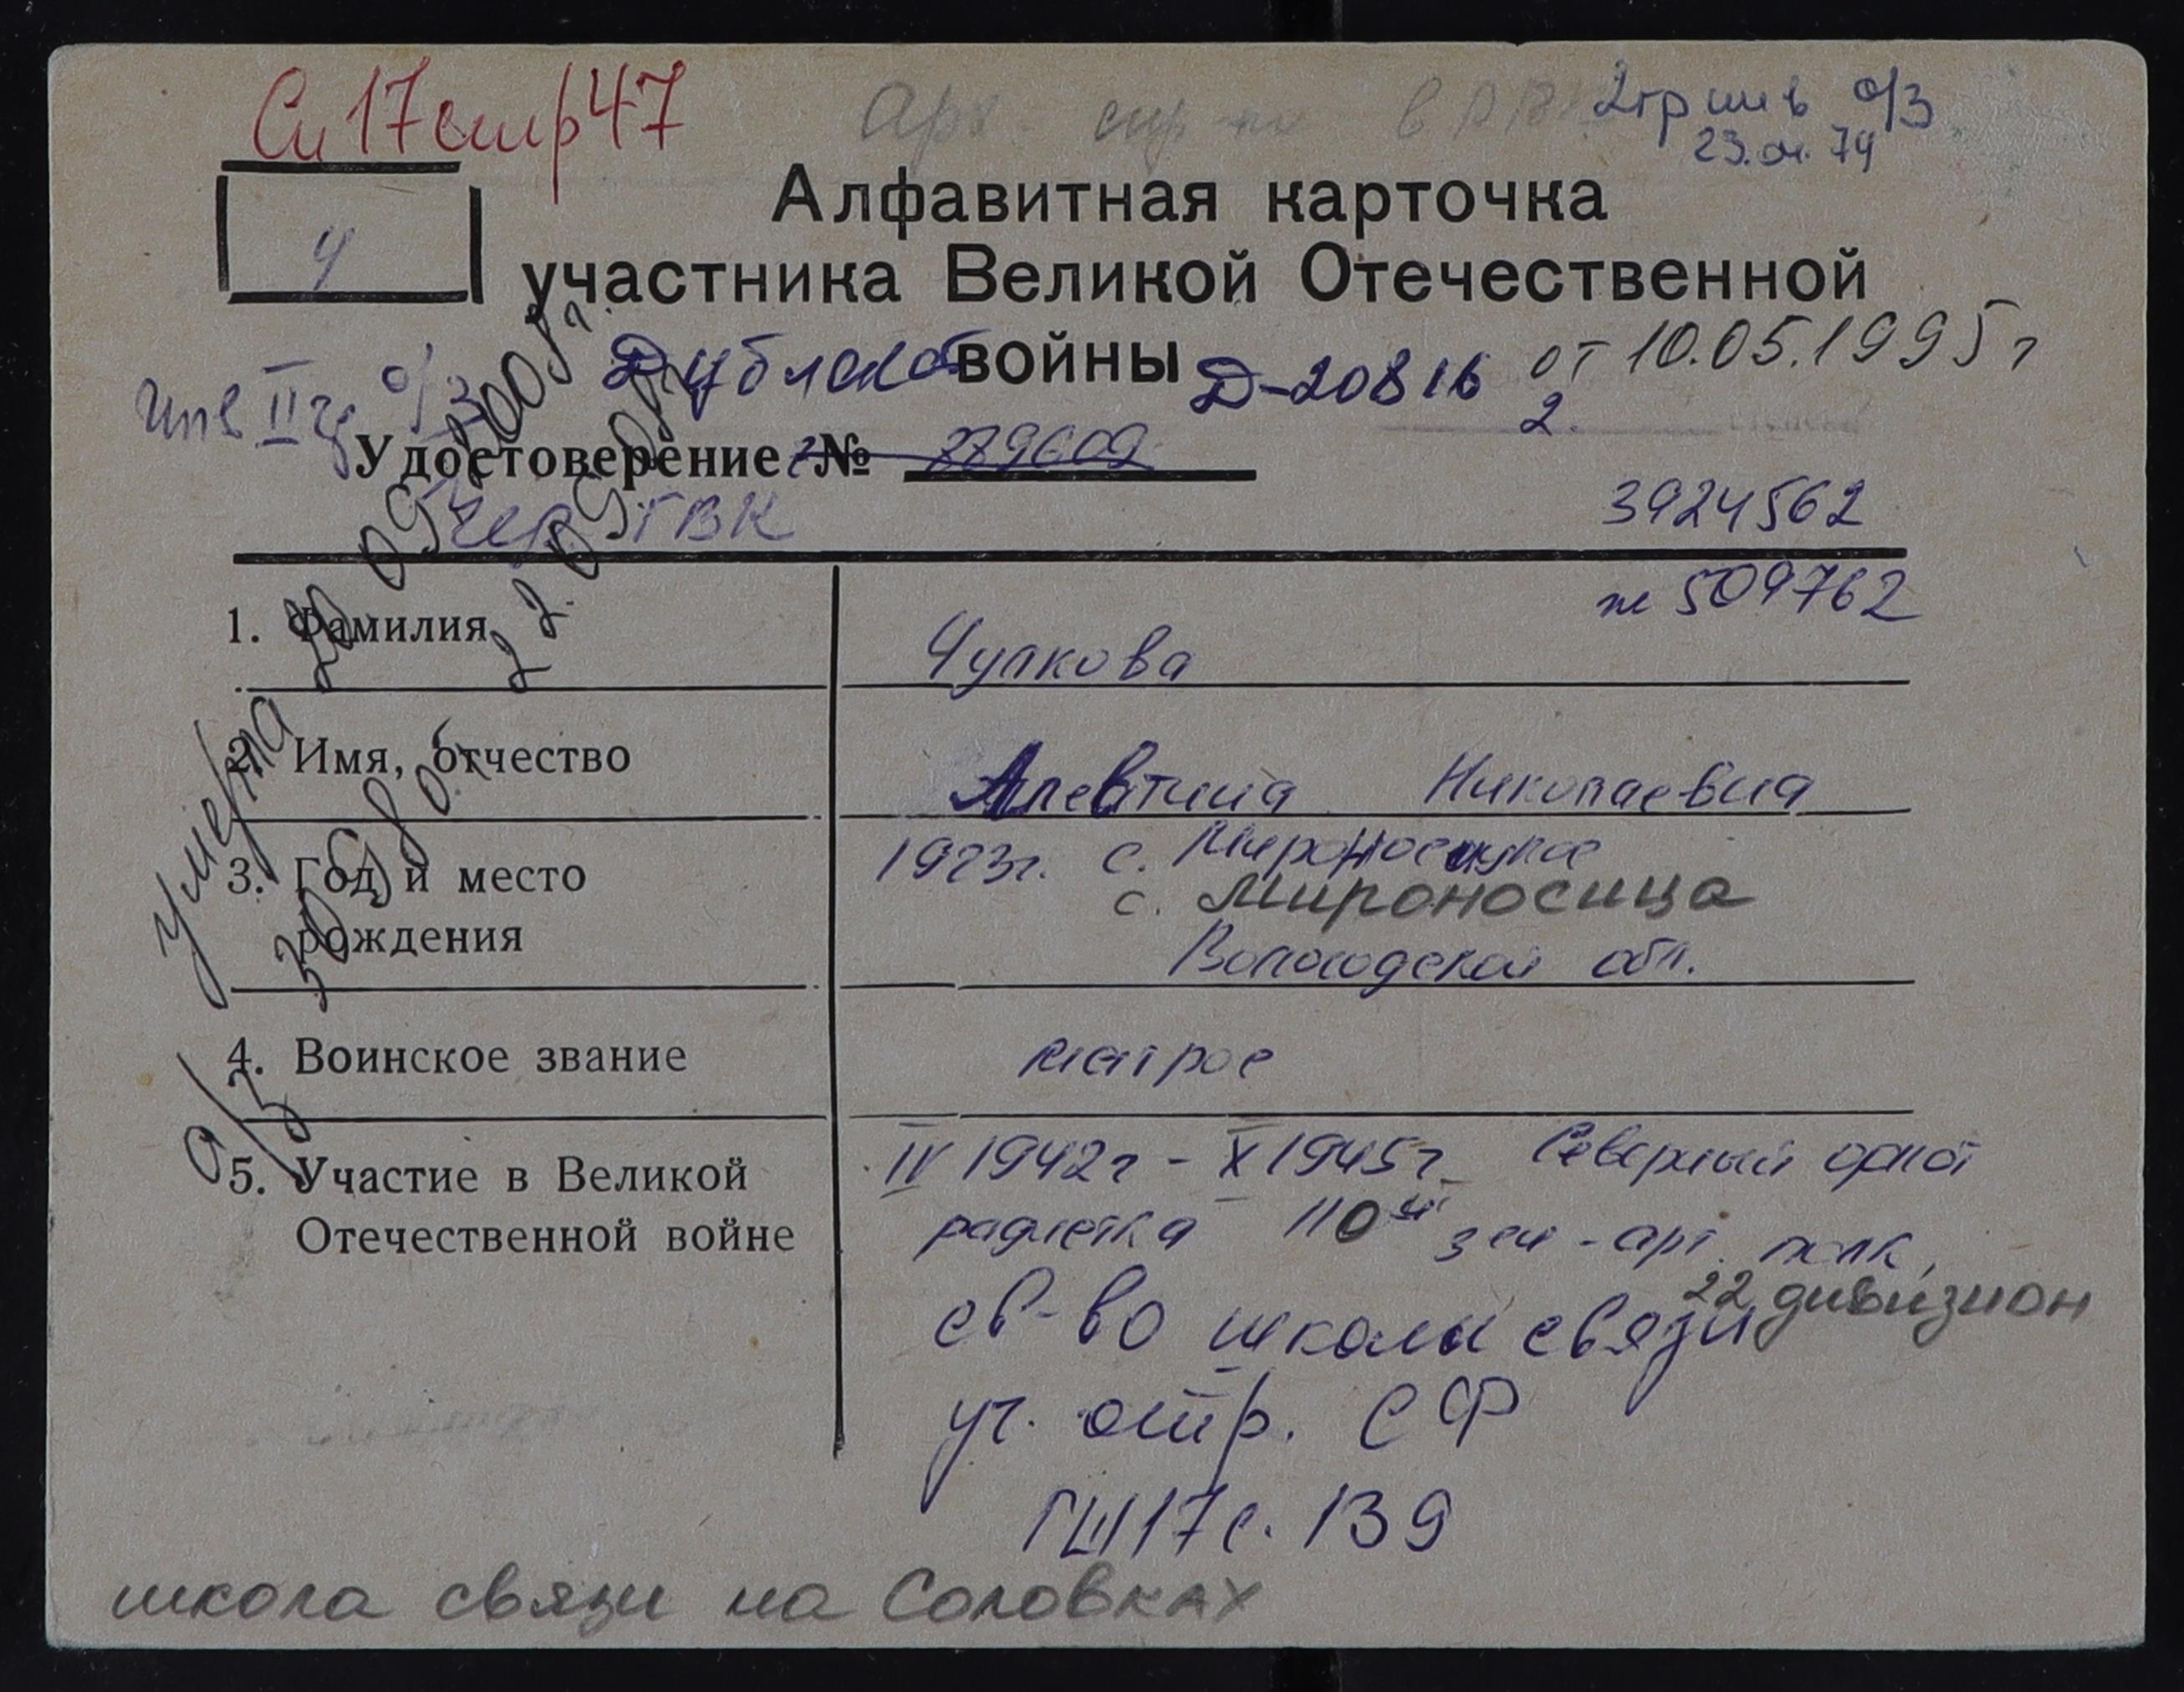 Сп 17 стр 47
2 гр инв о/з
23.04.79
Ч
Алфавитная карточка
участника Великой Отечественной
войны
Дубликат Д-20816 от 10.05.1995 г
инв II гр о/з
2.
Удостоверение № 279609
Чер ГВК
3924562
509762
1. Фамилия Чулкова
2. Имя, отчество Алевтина Николаевна
3. Год и место рождения 1923г. с.
с. Мироносица
Вологодской обл.
4. Воинское звание матрос
5. Участие в Великой Отечественной войне
IV 1942г - X 1945г Северный флот
радистка 110 зен-арт. полк,
22 дивизион
св-во школы связи
уч. отр. СФ
ГШ 17 с. 139
умерла
о/з
школа связи на Соловках